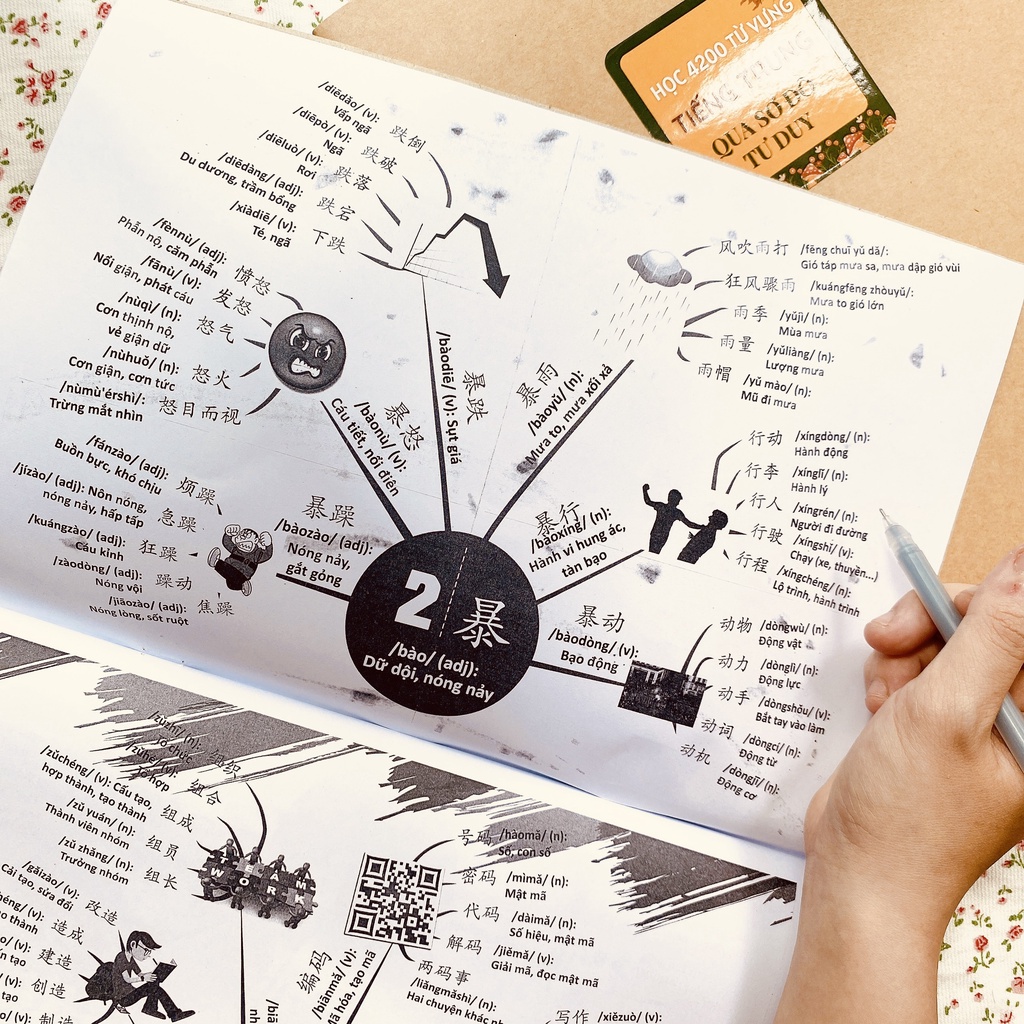 HỌC 4200 TỪ VỰNG
TIẾNG TRUNG
QUA SƠ ĐỒ
TƯ DUY
/diēdǎo/ (v):
Vấp ngã
跌倒
/diēpò/ (v):
Ngã
跌破
/diēluò/ (v):
Rơi
跌落
/diēdàng/ (adj):
Du dương, trầm bổng
跌宕
/xiàdiē/ (v):
Té, ngã
下跌
/bàodiē/ (v): Sụt giá
暴跌
/fènnù/ (adj):
Phẫn nộ, căm phẫn
愤怒
/fānù/ (v):
Nổi giận, phát cáu
发怒
/nùqì/ (n):
Cơn thịnh nộ,
vẻ giận dữ
怒气
/nùhuǒ/ (n):
Cơn giận, cơn tức
怒火
/nùmù'érshì/:
Trừng mắt nhìn
怒目而视
暴怒
/bàonù/ (v):
Cáu tiết, nổi điên
/fánzào/ (adj):
Buồn bực, khó chịu
烦躁
/jízào/ (adj): Nôn nóng,
nóng nảy, hấp tấp
急躁
/kuángzào/ (adj):
Cáu kỉnh
狂躁
/zàodòng/ (adj):
Nóng vội
躁动
/jiāozào/ (adj):
Nóng lòng, sốt ruột
焦躁
暴躁
/bàozào/ (adj):
Nóng nảy,
gắt gỏng
2 暴
/bào/ (adj):
Dữ dội, nóng nảy
暴雨
/bàoyǔ/ (n):
Mưa to, mưa xối xả
风吹雨打
/fēng chuī yǔ dǎ/:
Gió táp mưa sa, mưa dập gió vùi
狂风骤雨
/kuángfēng zhòuyǔ/:
Mưa to gió lớn
雨季
/yǔjì/ (n):
Mùa mưa
雨量
/yǔliàng/ (n):
Lượng mưa
雨帽
/yǔ mào/ (n):
Mũ đi mưa
暴行
/bàoxíng/ (n):
Hành vi hung ác,
tàn bạo
行动
/xíngdòng/ (n):
Hành động
行李
/xínglǐ/ (n):
Hành lý
行人
/xíngrén/ (n):
Người đi đường
行驶
/xíngshǐ/ (v):
Chạy (xe, thuyền...)
行程
/xíngchéng/ (n):
Lộ trình, hành trình
暴动
/bàodòng/ (v):
Bạo động
动物
/dòngwù/ (n):
Động vật
动力
/dònglì/ (n):
Động lực
动手
/dòngshǒu/ (v):
Bắt tay vào làm
动词
/dòngcí/ (n):
Động từ
动机
/dòngjī/ (n):
Động cơ
/zǔzhī/ (n):
Tổ chức
组织
/zǔhé/ (v):
Tổ hợp
组合
/zǔchéng/ (v): Cấu tạo,
hợp thành, tạo thành
组成
/zǔ yuán/ (n):
Thành viên nhóm
组员
/zǔ zhǎng/ (n):
Trưởng nhóm
组长
TEAM
WORK
/gǎizào/ (v):
Cải tạo, sửa đổi
改造
造成
建造
创造
制造
号码
/hàomǎ/ (n):
Số, con số
密码
/mìmǎ/ (n):
Mật mã
代码
/dàimǎ/ (n):
Số hiệu, mật mã
解码
/jiěmǎ/ (n):
Giải mã, đọc mật mã
两码事
/liǎngmǎshì/ (n):
Hai chuyện khác
编码
/biānmǎ/ (v):
Mã hóa, tạo mã
写作
/xiězuò/ (v):